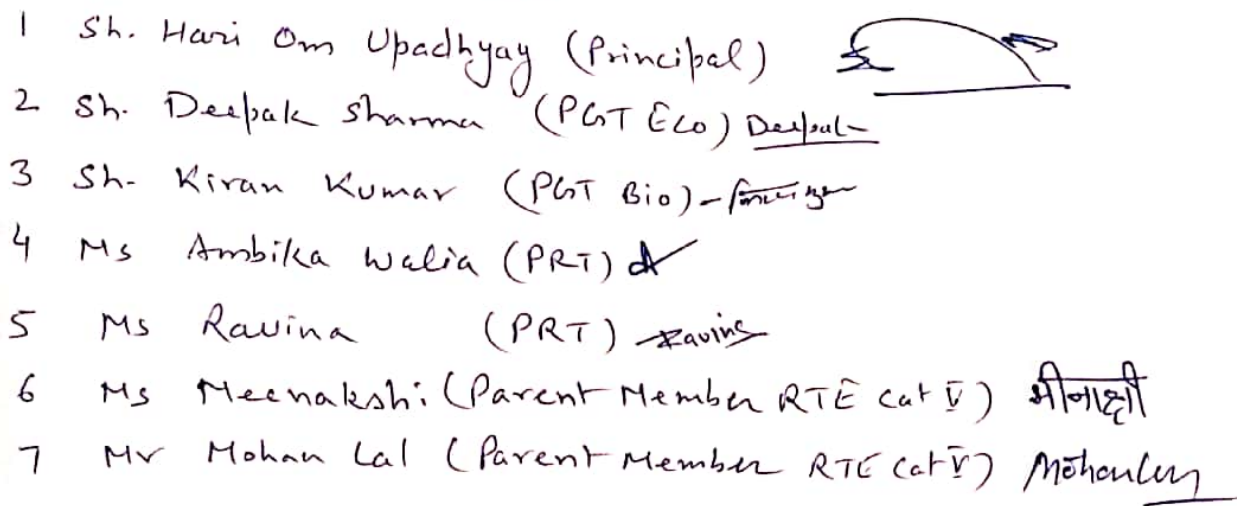 1 Sh. Hari Om Upadhyay (Principal)
2 Sh. Deepak Sharma (PGT Eco) Deepak
3 Sh- Kiran Kumar (PGT Bio) -
4 Ms Ambika Walia (PRT)
5 Ms Ravina (PRT) Ravina
6 Ms Meenakshi (Parent Member RTE Cat V) मीनाक्षी
7 Mr Mohan Lal (Parent Member RTE Cat V) Mohan